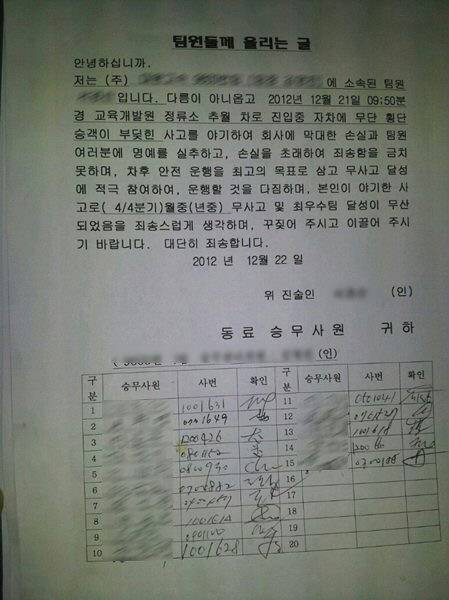 팀원들께 올리는 글
안녕하십니까.
저는 (주) 에 소속된 팀원
입니다. 다름이 아니옵고 2012년 12월 21일 09:50분
경 교육개발원 정류소 추월 차로 진입중 자차에 무단 횡단
승객이 부딪힌 사고를 야기하여 회사에 막대한 손실과 팀원
여러분에 명예를 실추하고, 손실을 초래하여 죄송함을 금치
못하며, 차후 안전 운행을 최고의 목표로 삼고 무사고 달성
에 적극 참여하여, 운행할 것을 다짐하며, 본인이 야기한 사
고로( 4/4분기)월중(년중) 무사고 및 최우수팀 달성이 무산
되었음을 죄송스럽게 생각하며, 꾸짖어 주시고 이끌어 주시
기 바랍니다. 대단히 죄송합니다.
2012 년 12월 22 일
위 진술인 (인)
동료 승무사원 귀 하
(인)
구분 승무사원 사번 확인 구분 승무사원 사번 확인
1 1001631 11
2 0701649 12
3 1200426 13
4 0801152 14
5 0800930 15
6 0700882 16
7 17
8 1001610 18
9 19
10 1001628 20